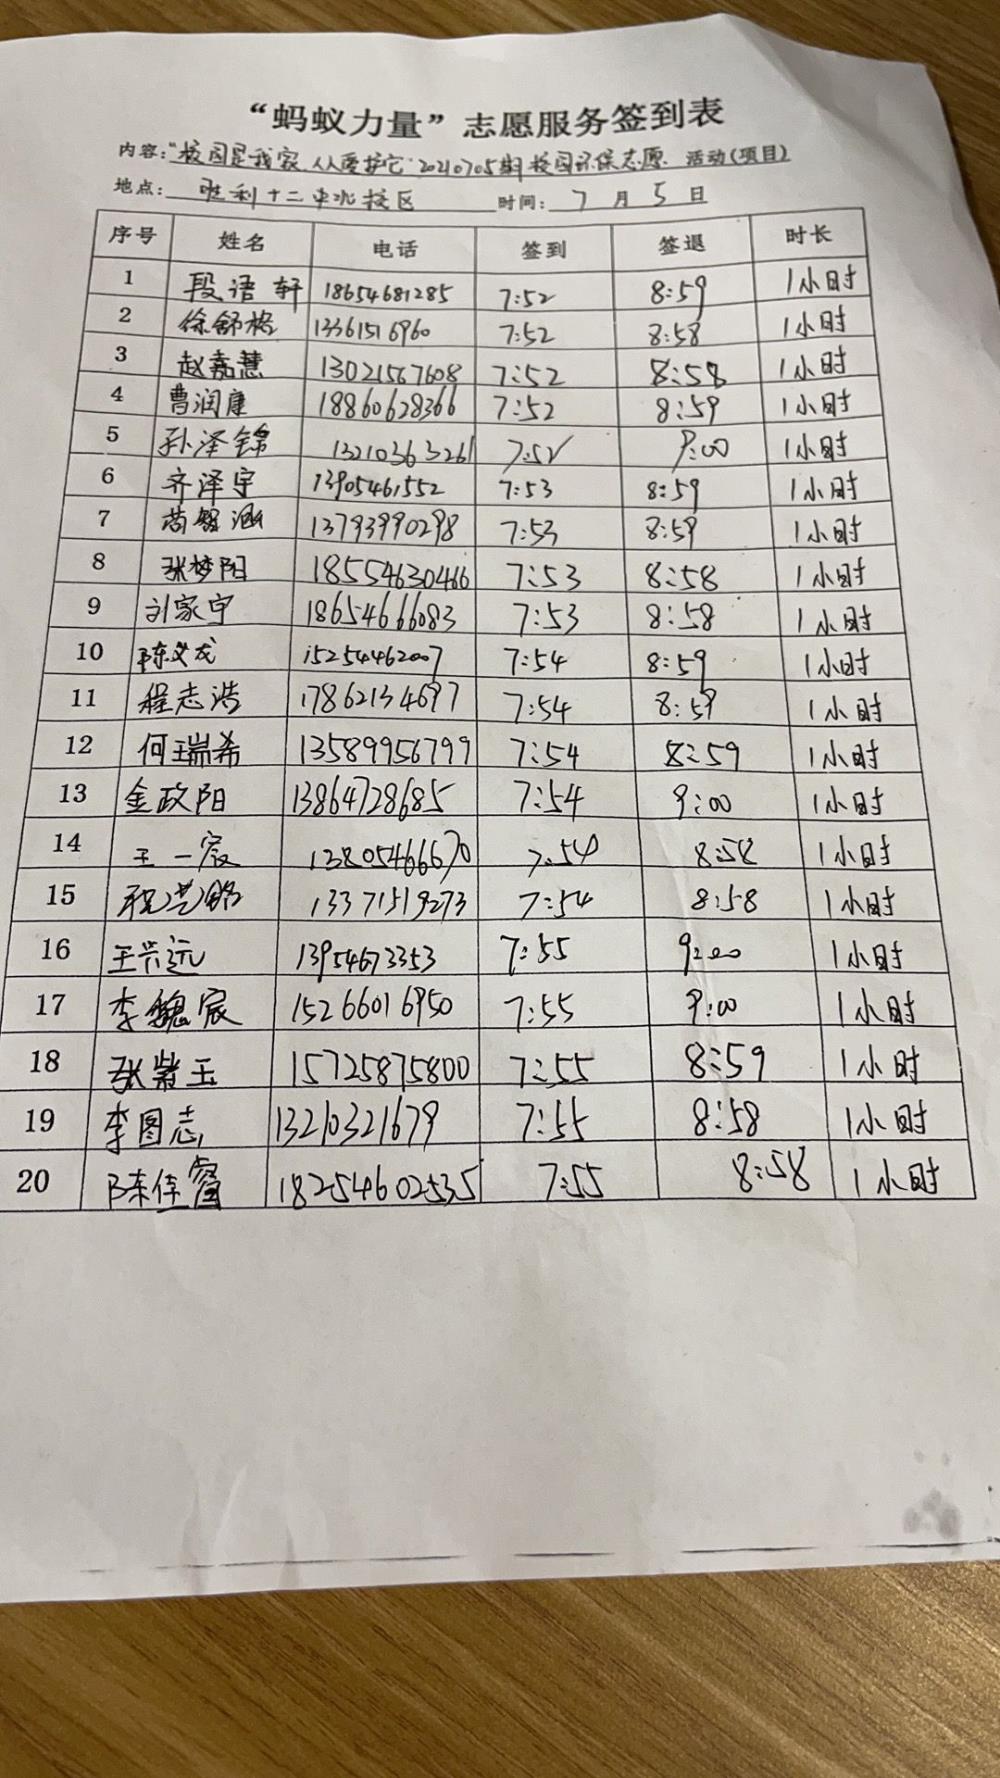 “蚂蚁力量”志愿服务签到表
内容：“校园是我家，人人爱护它”20210705期校园环保志愿 活动(项目)
地点： 胜利十二中北校区 时间： 7 月 5 日
序号 姓名 电话 签到 签退 时长
1 段语轩 18654681285 7:52 8:59 1小时
2 徐舒格 13361516960 7:52 8:58 1小时
3 赵嘉慧 13021567608 7:52 8:58 1小时
4 曹润康 18860628366 7:52 8:59 1小时
5 孙泽锦 13210363261 7:52 9:00 1小时
6 齐泽宇 13905461552 7:53 8:59 1小时
7 13793990298 7:53 8:59 1小时
8 张梦阳 18554630466 7:53 8:58 1小时
9 刘家宇 18654666083 7:53 8:58 1小时
10 陈义龙 15254462007 7:54 8:59 1小时
11 程志浩 17862134697 7:54 8:59 1小时
12 何瑞希 13589956799 7:54 8:59 1小时
13 金政阳 13864728685 7:54 9:00 1小时
14 王一宸 13805466670 7:54 8:58 1小时
15 13371519273 7:54 8:58 1小时
16 王兴远 13954673353 7:55 9:00 1小时
17 李魏宸 15266016950 7:55 9:00 1小时
18 张紫玉 15725875800 7:55 8:59 1小时
19 李图志 13210321679 7:55 8:58 1小时
20 陈佳睿 18254602535 7:55 8:58 1小时